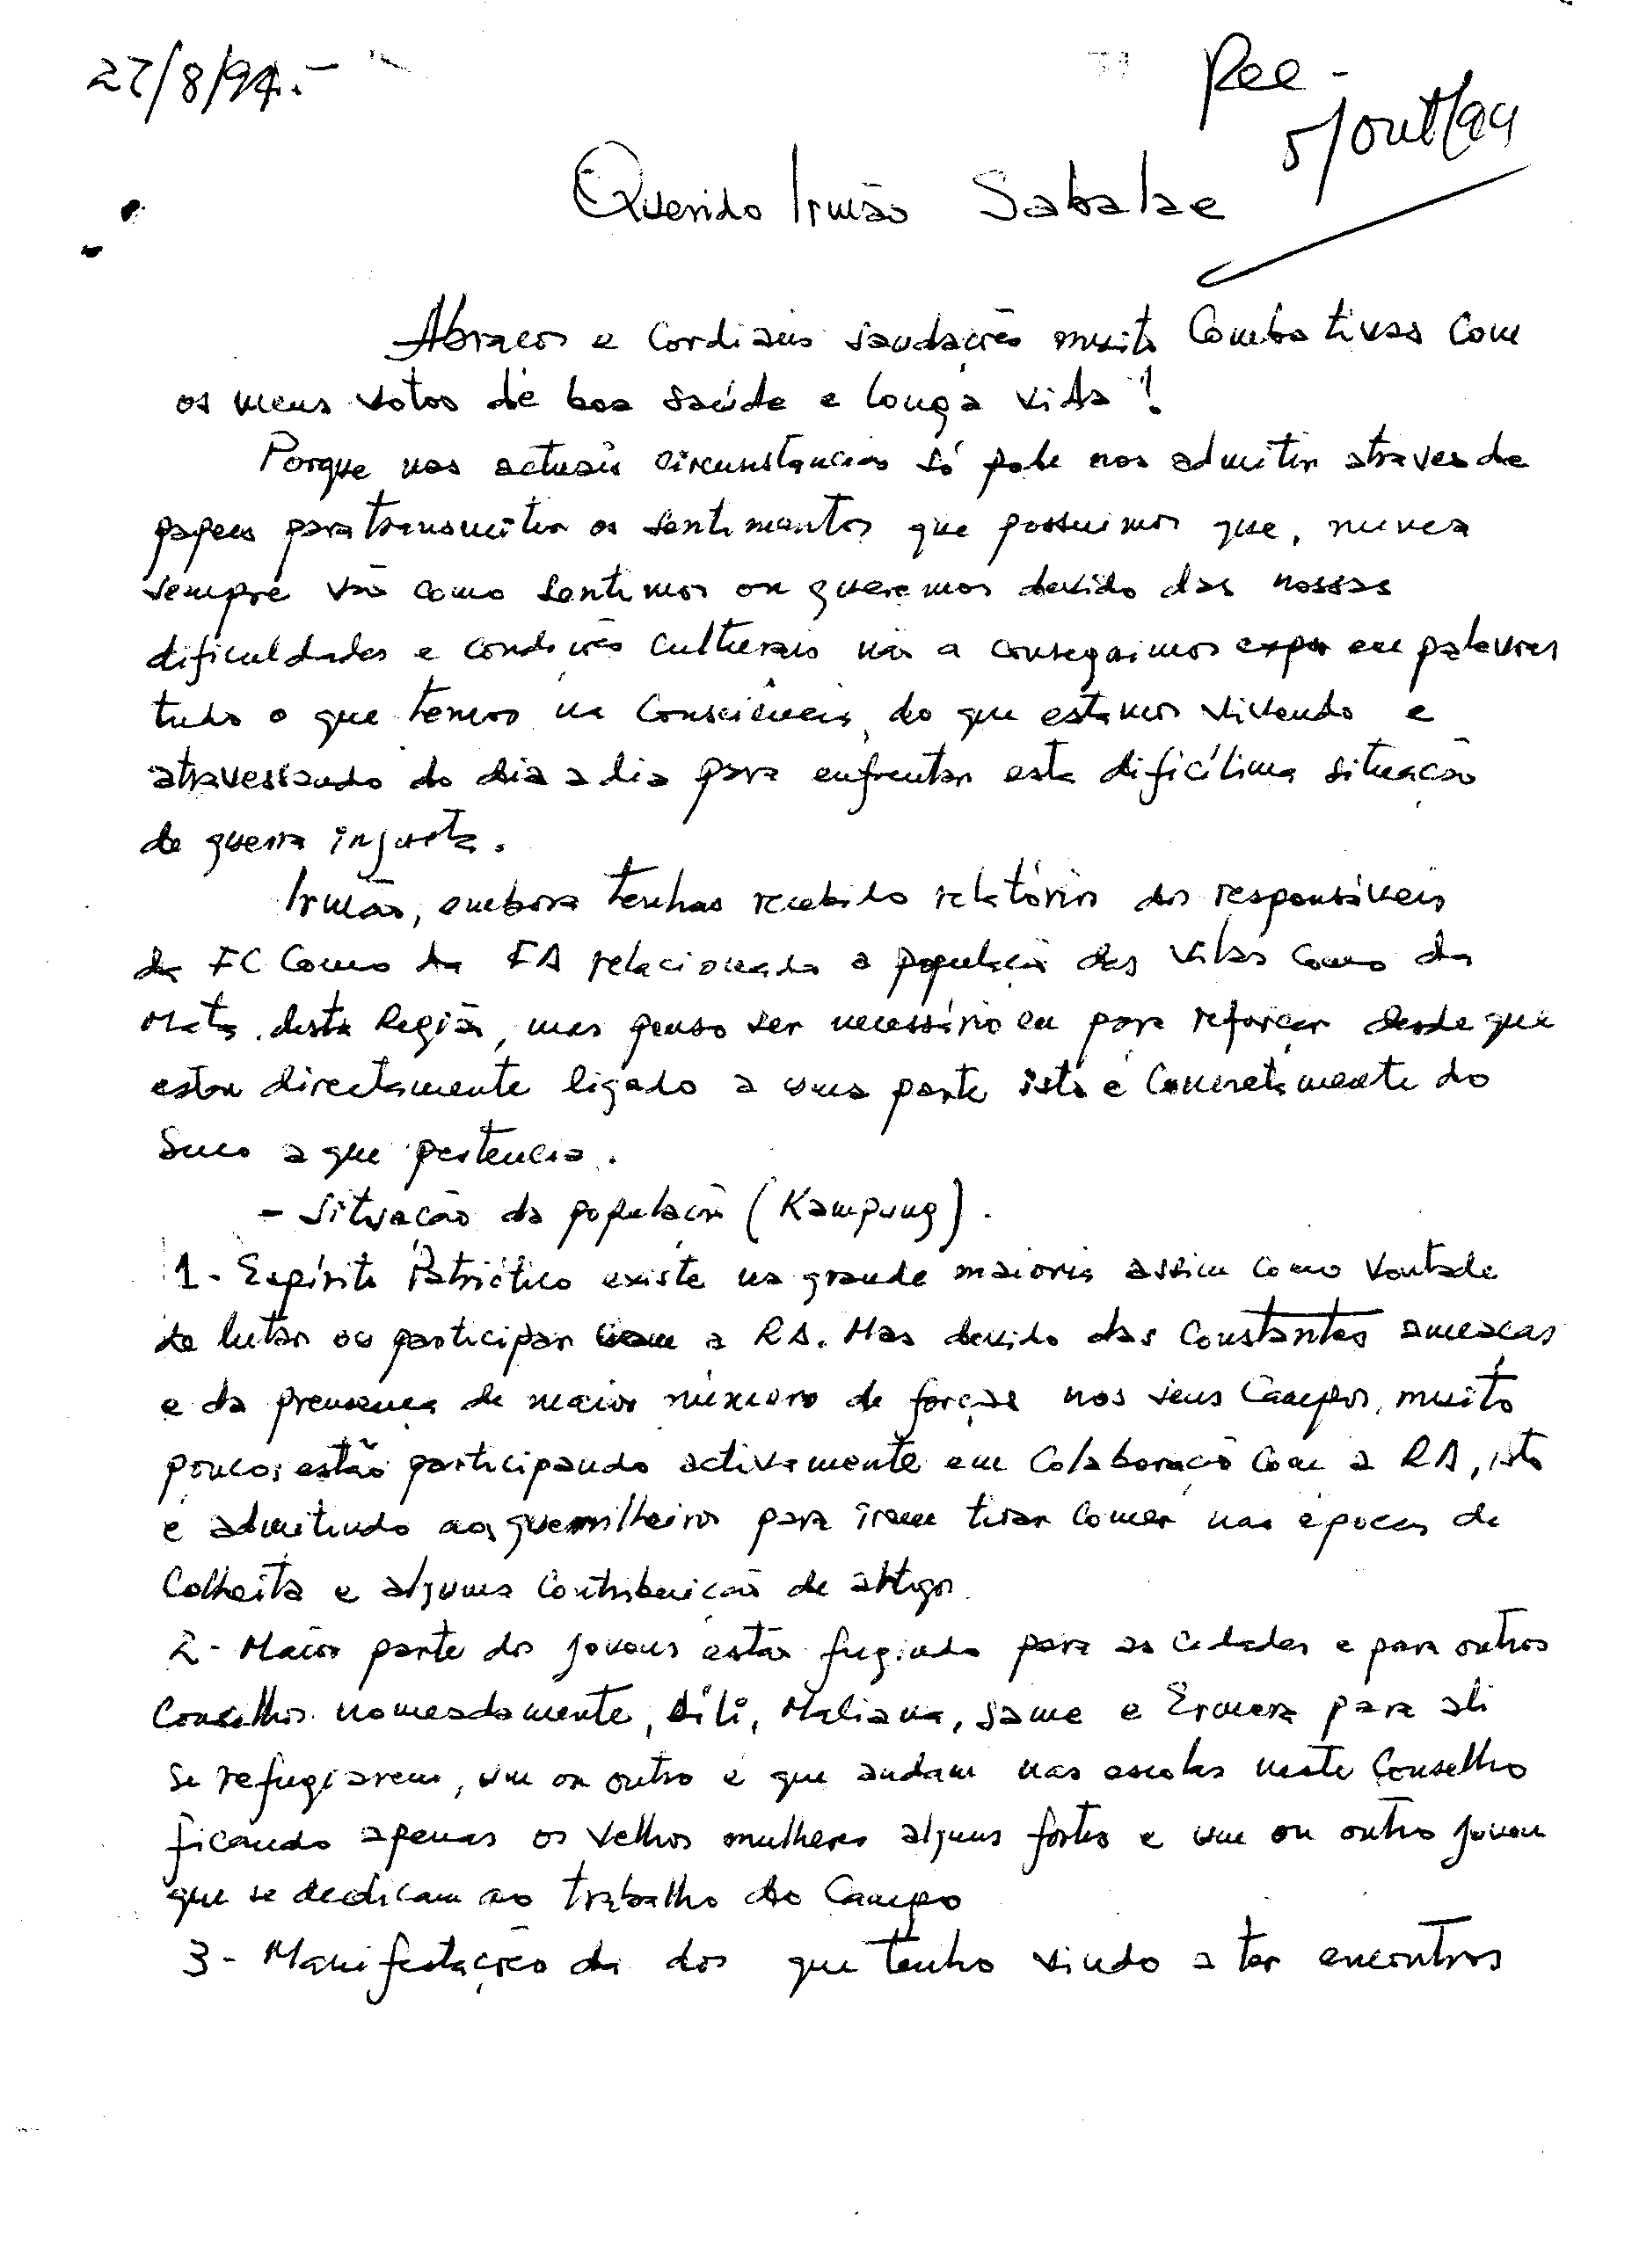 27/8/94.-
Rec -
5/out/94
Querido Irmão Sabalae
Abraços e cordiais saudações muito combativas com
os meus votos de boa saúde e longa vida!
Porque nas actuais circunstâncias só pode nos admitir atraves de
papeis para transmitir os sentimentos que possuimos que, nunca
sempre vão como sentimos ou queremos devido das nossas
dificuldades e condições culturais não a conseguimos expor em palavras
tudo o que temos na consciência, do que estamos vivendo e
atravessando do dia a dia para enfrentar esta dificílima situação
de guerra injusta.
Irmão, embora tenhas recebido relatórios dos responsáveis
da FC como da FA relacionada a população das vilas como da
Mata desta Região, mas penso ser necessário eu para reforçar desde que
estou directamente ligado a uma parte isto é concretamente do
Suco a que pertencia.
- Situação da população (Kampung).
1- Espírito Patriótico existe na grande maioria assim como vontade
de lutar ou participar com a RA. Mas devido das constantes ameaças
e da presença de maior número de forças nos seus Campos, muito
poucos estão participando activamente em colaboração com a RA, isto
é admitindo aos guerrilheiros para irem tirar comer nas épocas de
colheita e alguma contribuição de artigos.
2- Maior parte dos jovens estão fugindo para as cidades e para outros
Conselhos nomeadamente, Dili, Maliana, Same e Ermera para ali
se refugiarem, um ou outro é que andam nas escolas neste Conselho
ficando apenas os velhos mulheres alguns fortes e um ou outro jovem
que se dedicam ao trabalho do Campo
3- Manifestações da dos que tenho vindo a ter encontros